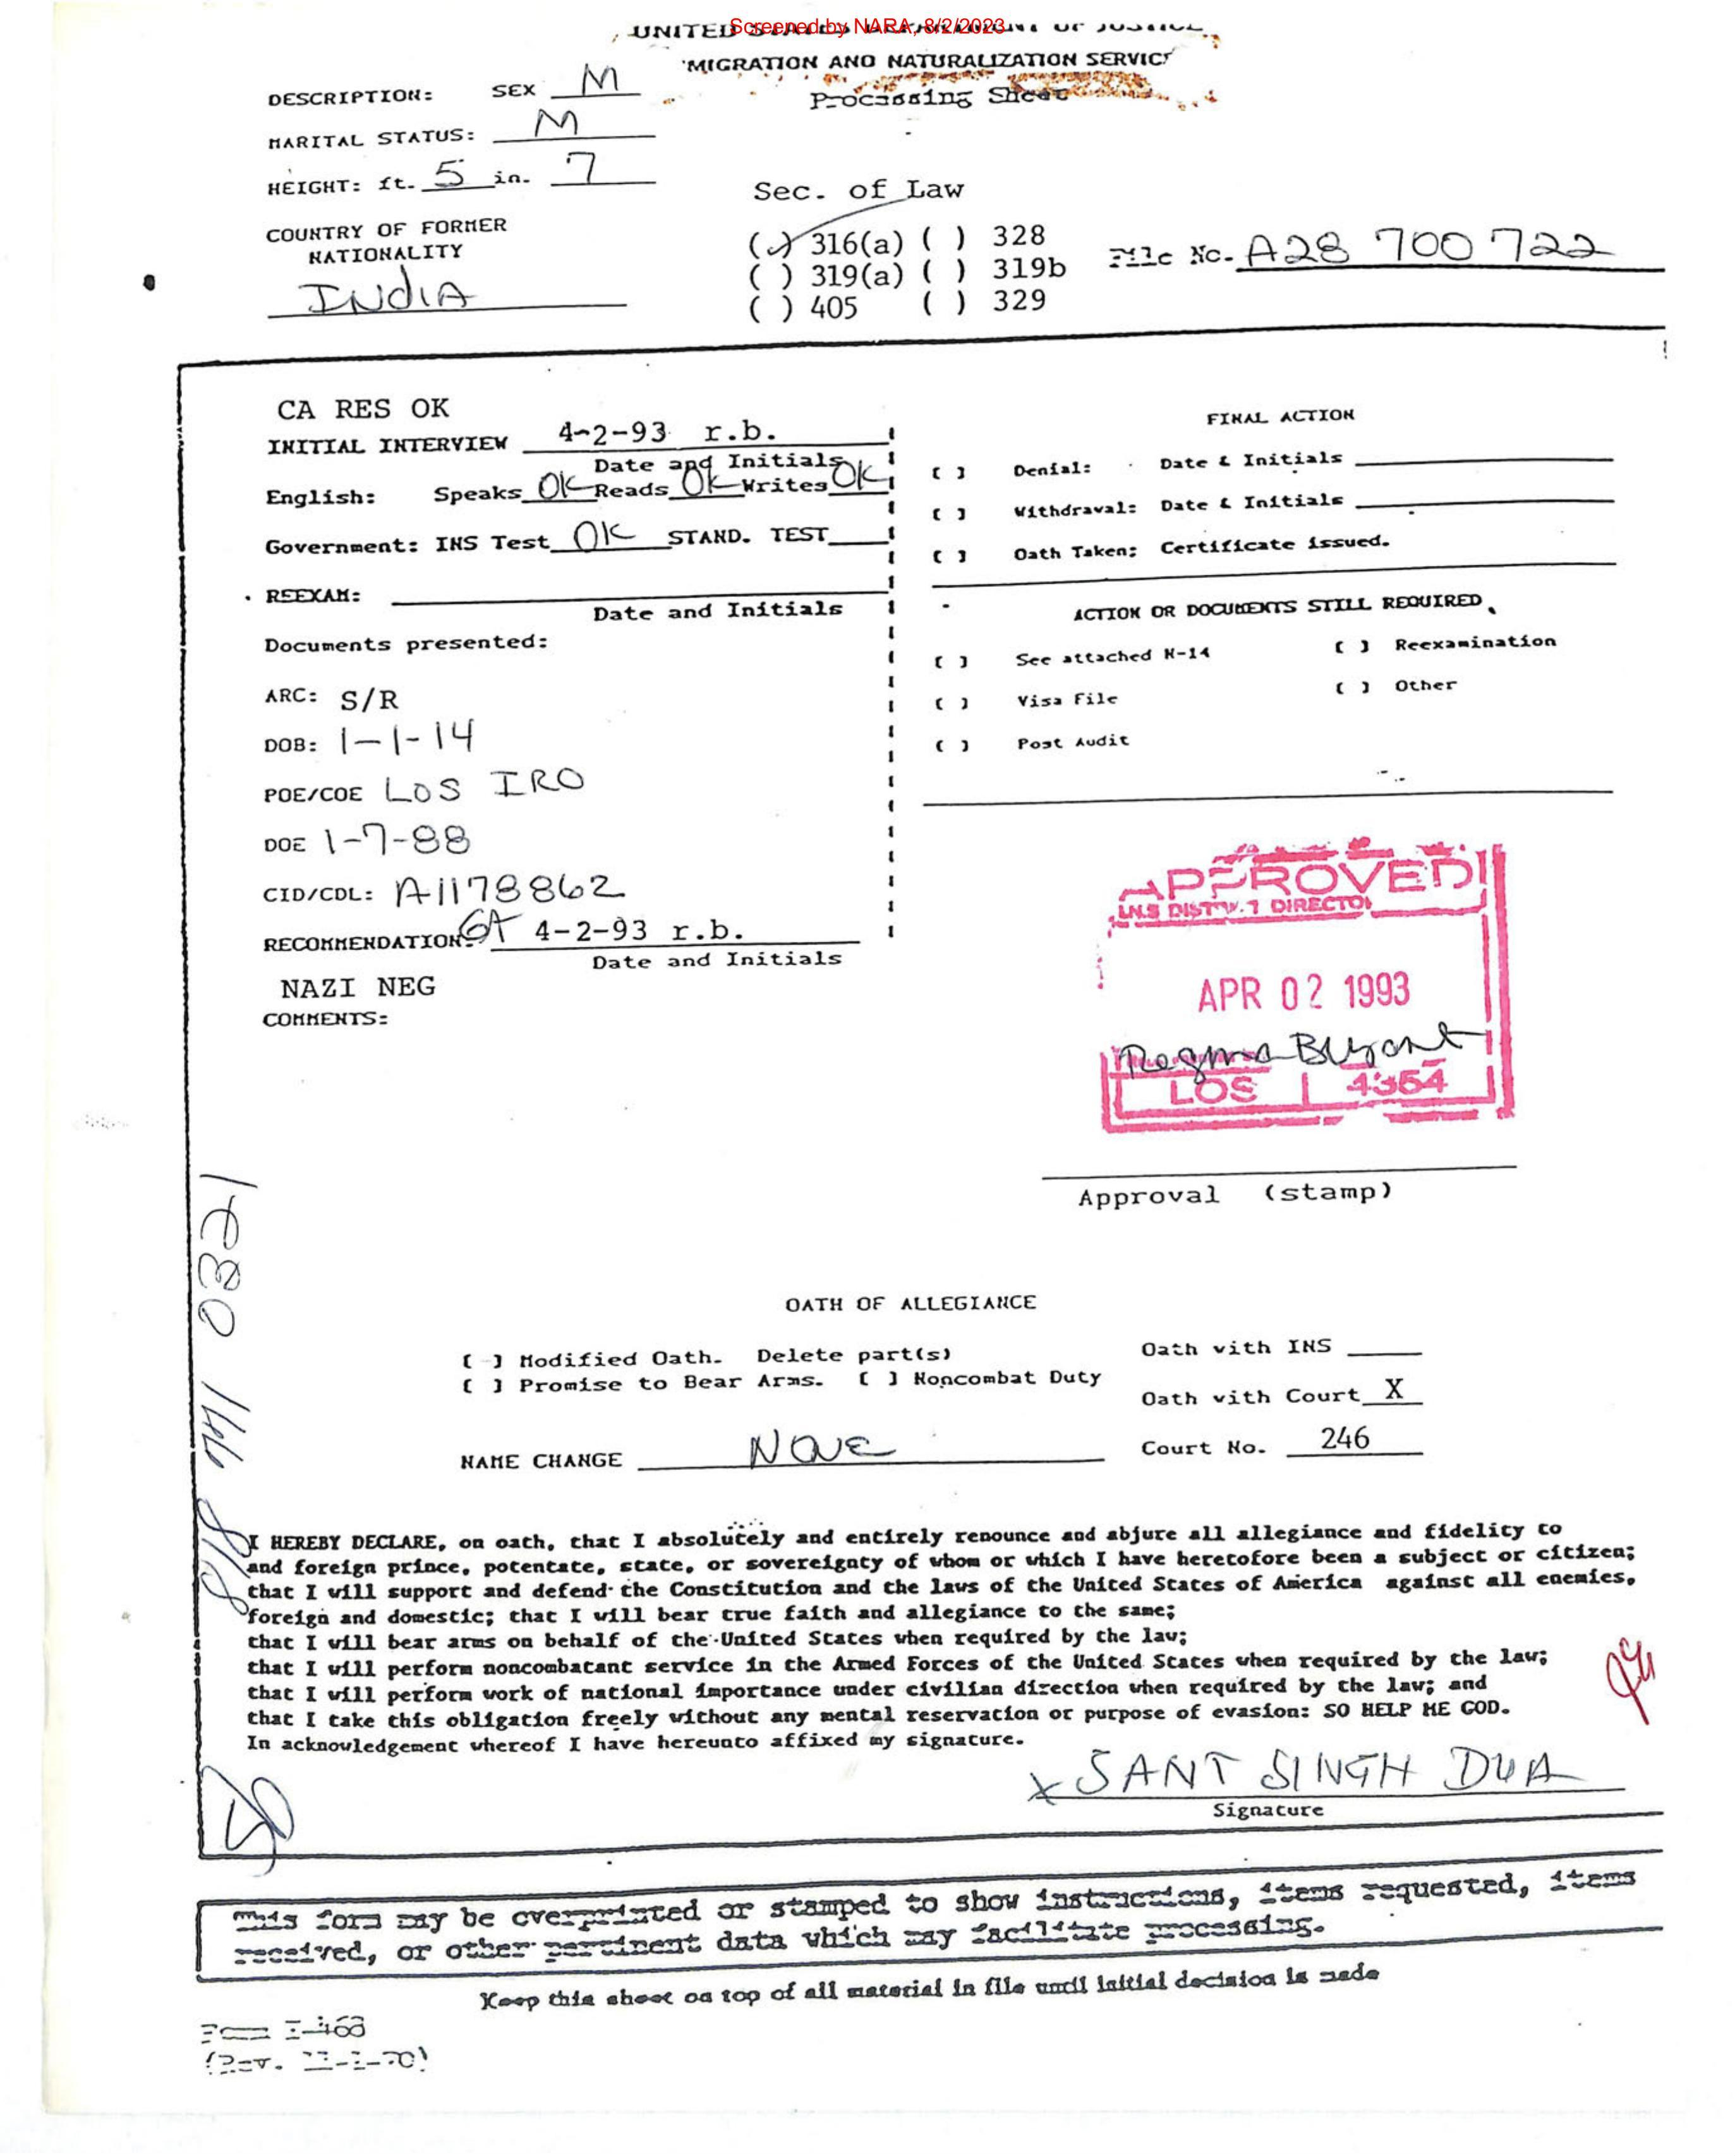 Screened by NARA, 8/2/2023
UNITED STATES DEPARTMENT OF JUSTICE
MIGRATION AND NATURALIZATION SERVICE
Processing Sheet
DESCRIPTION: SEX M
MARITAL STATUS: M
HEIGHT: ft. 5 in. 7
COUNTRY OF FORMER
NATIONALITY
INDIA
Sec. of Law
(✓) 316(a) ( ) 328
( ) 319(a) ( ) 319b
( ) 405 ( ) 329
File No. A28 700 722
CA RES OK
INITIAL INTERVIEW 4-2-93 r.b.
Date and Initials
English: Speaks OK Reads OK Writes OK
Government: INS Test OK STAND. TEST
REEXAM:
Date and Initials
Documents presented:
ARC: S/R
DOB: 1-1-14
POE/COE LOS IRO
DOE 1-7-88
CID/CDL: A1178862
RECOMMENDATION: GA 4-2-93 r.b.
Date and Initials
NAZI NEG
COMMENTS:
FINAL ACTION
( ) Denial: Date & Initials
( ) Withdrawal: Date & Initials
( ) Oath Taken; Certificate issued.
ACTION OR DOCUMENTS STILL REQUIRED
( ) See attached N-14 ( ) Reexamination
( ) Visa File ( ) Other
( ) Post Audit
APPROVED
I.N.S DISTRICT DIRECTOR
APR 02 1993
LOS 4354
Approval (stamp)
818 441 0321
OATH OF ALLEGIANCE
[ ] Modified Oath. Delete part(s)
[ ] Promise to Bear Arms. [ ] Noncombat Duty
Oath with INS
Oath with Court X
NAME CHANGE NONE
Court No. 246
I HEREBY DECLARE, on oath, that I absolutely and entirely renounce and abjure all allegiance and fidelity to
and foreign prince, potentate, state, or sovereignty of whom or which I have heretofore been a subject or citizen;
that I will support and defend the Constitution and the laws of the United States of America against all enemies,
foreign and domestic; that I will bear true faith and allegiance to the same;
that I will bear arms on behalf of the United States when required by the law;
that I will perform noncombatant service in the Armed Forces of the United States when required by the law;
that I will perform work of national importance under civilian direction when required by the law; and
that I take this obligation freely without any mental reservation or purpose of evasion: SO HELP ME GOD.
In acknowledgement whereof I have hereunto affixed my signature.
X SANT SINGH DUA
Signature
This form may be overprinted or stamped to show instructions, items requested, items
received, or other pertinent data which may facilitate processing.
Keep this sheet on top of all material in file until initial decision is made
Form I-468